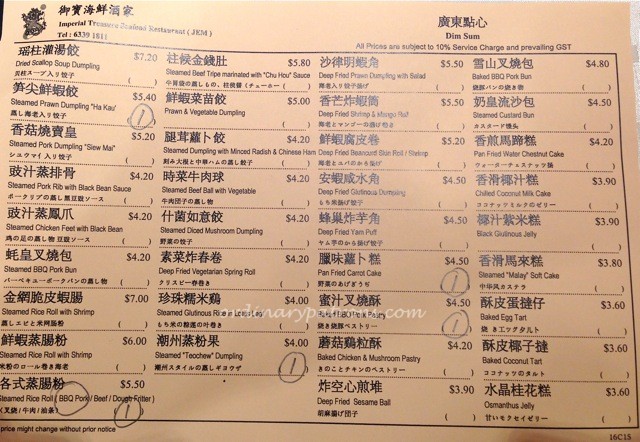 御寶海鮮酒家
Imperial Treasure Seafood Restaurant ( JEM )
Tel : 6339 1811
廣東點心
Dim Sum
All Prices are subject to 10% Service Charge and prevailing GST
瑶柱灌湯餃 $7.20
Dried Scallop Soup Dumpling
貝柱スープ入り餃子 ( )
笋尖鮮蝦餃 $5.40
Steamed Prawn Dumpling "Ha Kau"
蒸し海老入り餃子 1
香菇燒賣皇 $5.20
Steamed Pork Dumpling "Siew Mai"
シュウマイ入り餃子 ( )
豉汁蒸排骨 $4.20
Steamed Pork Rib with Black Bean Sauce
ポークリップの蒸し豆豉ソース ( )
豉汁蒸鳳爪 $4.20
Steamed Chicken Feet with Black Bean
鶏の足の蒸し物 豆豉ソース ( )
蚝皇叉燒包 $4.20
Steamed BBQ Pork Bun
バーベキューポークバンの蒸し物 ( )
金網脆皮蝦腸 $7.00
Steamed Rice Roll with Shrimp
蒸しエビと米网肠粉 ( )
鮮蝦蒸腸粉 $6.00
Steamed Rice Roll with Shrimp
米粉のロール巻き海老 ( )
各式蒸腸粉 $5.50
Steamed Rice Roll ( BBQ Pork / Beef / Dough Fritter )
(叉焼/牛肉/油条) 1
price might change without prior notice
柱候金錢肚 $5.80
Steamed Beef Tripe marinated with "Chu Hou" Sauce
鮮蝦菜苗餃 $5.00
Prawn & Vegetable Dumpling
( )
腿茸蘿卜餃 $4.20
Steamed Dumpling with Minced Radish & Chinese Ham
刻み大根と中華ハムの蒸し餃子 ( )
時菜牛肉球 $4.20
Steamed Beef Ball with Vegetable
牛肉団子の蒸し物 ( )
什菌如意餃 $4.20
Steamed Diced Mushroom Dumpling
野菜の餃子 ( )
素菜炸春卷 $4.20
Deep Fried Vegetarian Spring Roll
クリスピー春巻き ( )
珍珠糯米鷄 $4.20
Steamed Glutinous Rice Dumpling
もち米の粽蓮の叶巻き ( )
潮州蒸粉果 $4.00
Steamed "Teochew" Dumpling
潮州スタイルの蒸しギョウザ 1
沙律明蝦角 $5.50
Deep Fried Prawn Dumpling with Salad
海老入り揚げ餃子 ( )
香芒炸蝦筒 $5.50
Deep Fried Shrimp & Mango Roll
海老とマンゴーの揚げ巻き ( )
鮮蝦腐皮卷 $5.50
Deep Fried Beancurd Skin Roll / Shrimp
海老とユバのから揚げ ( )
安蝦咸水角 $4.50
Deep Fried Glutinous Dumpling
もち米揚げ餃子 ( )
蜂巢炸芋角 $4.50
Deep Fried Yam Puff
ヤム芋のから揚げ餃子 ( )
臘味蘿卜糕 $4.50
Pan Fried Carrot Cake
野菜のあげぎょうざ 1
蜜汁叉燒酥 $4.50
Baked BBQ Pork Pastry
焼き豚焼ペストリー 1
蘑菇鷄粒酥 $4.20
Baked Chicken & Mushroom Pastry
きのことチキンのペストリー ( )
炸空心煎堆 $3.90
Deep Fried Sesame Ball
胡麻揚げ団子 ( )
雪山叉燒包 $4.80
Baked BBQ Pork Bun
焼豚パンの焼き物 ( )
奶皇流沙包 $4.50
Steamed Custard Bun
カスタード饅头 ( )
香煎馬蹄糕 $4.20
Pan Fried Water Chestnut Cake
ウォーターチェスナッツ揚 ( )
香滑椰汁糕 $3.90
Chilled Coconut Milk Cake
ココナッツミルクのゼリー ( )
椰汁紫米糕 $3.90
Black Glutinous Jelly
( )
香滑馬來糕 $3.80
Steamed "Malay" Soft Cake
中华风カステラ ( )
酥皮蛋撻仔 $3.60
Baked Egg Tart
焼きエッグタルト ( )
酥皮椰子撻 $3.60
Baked Coconut Tart
ココナッツのタルト ( )
水晶桂花糕 $3.60
Osmanthus Jelly
甘いモクセイゼリー ( )
16C15
ordinarypatrons.com